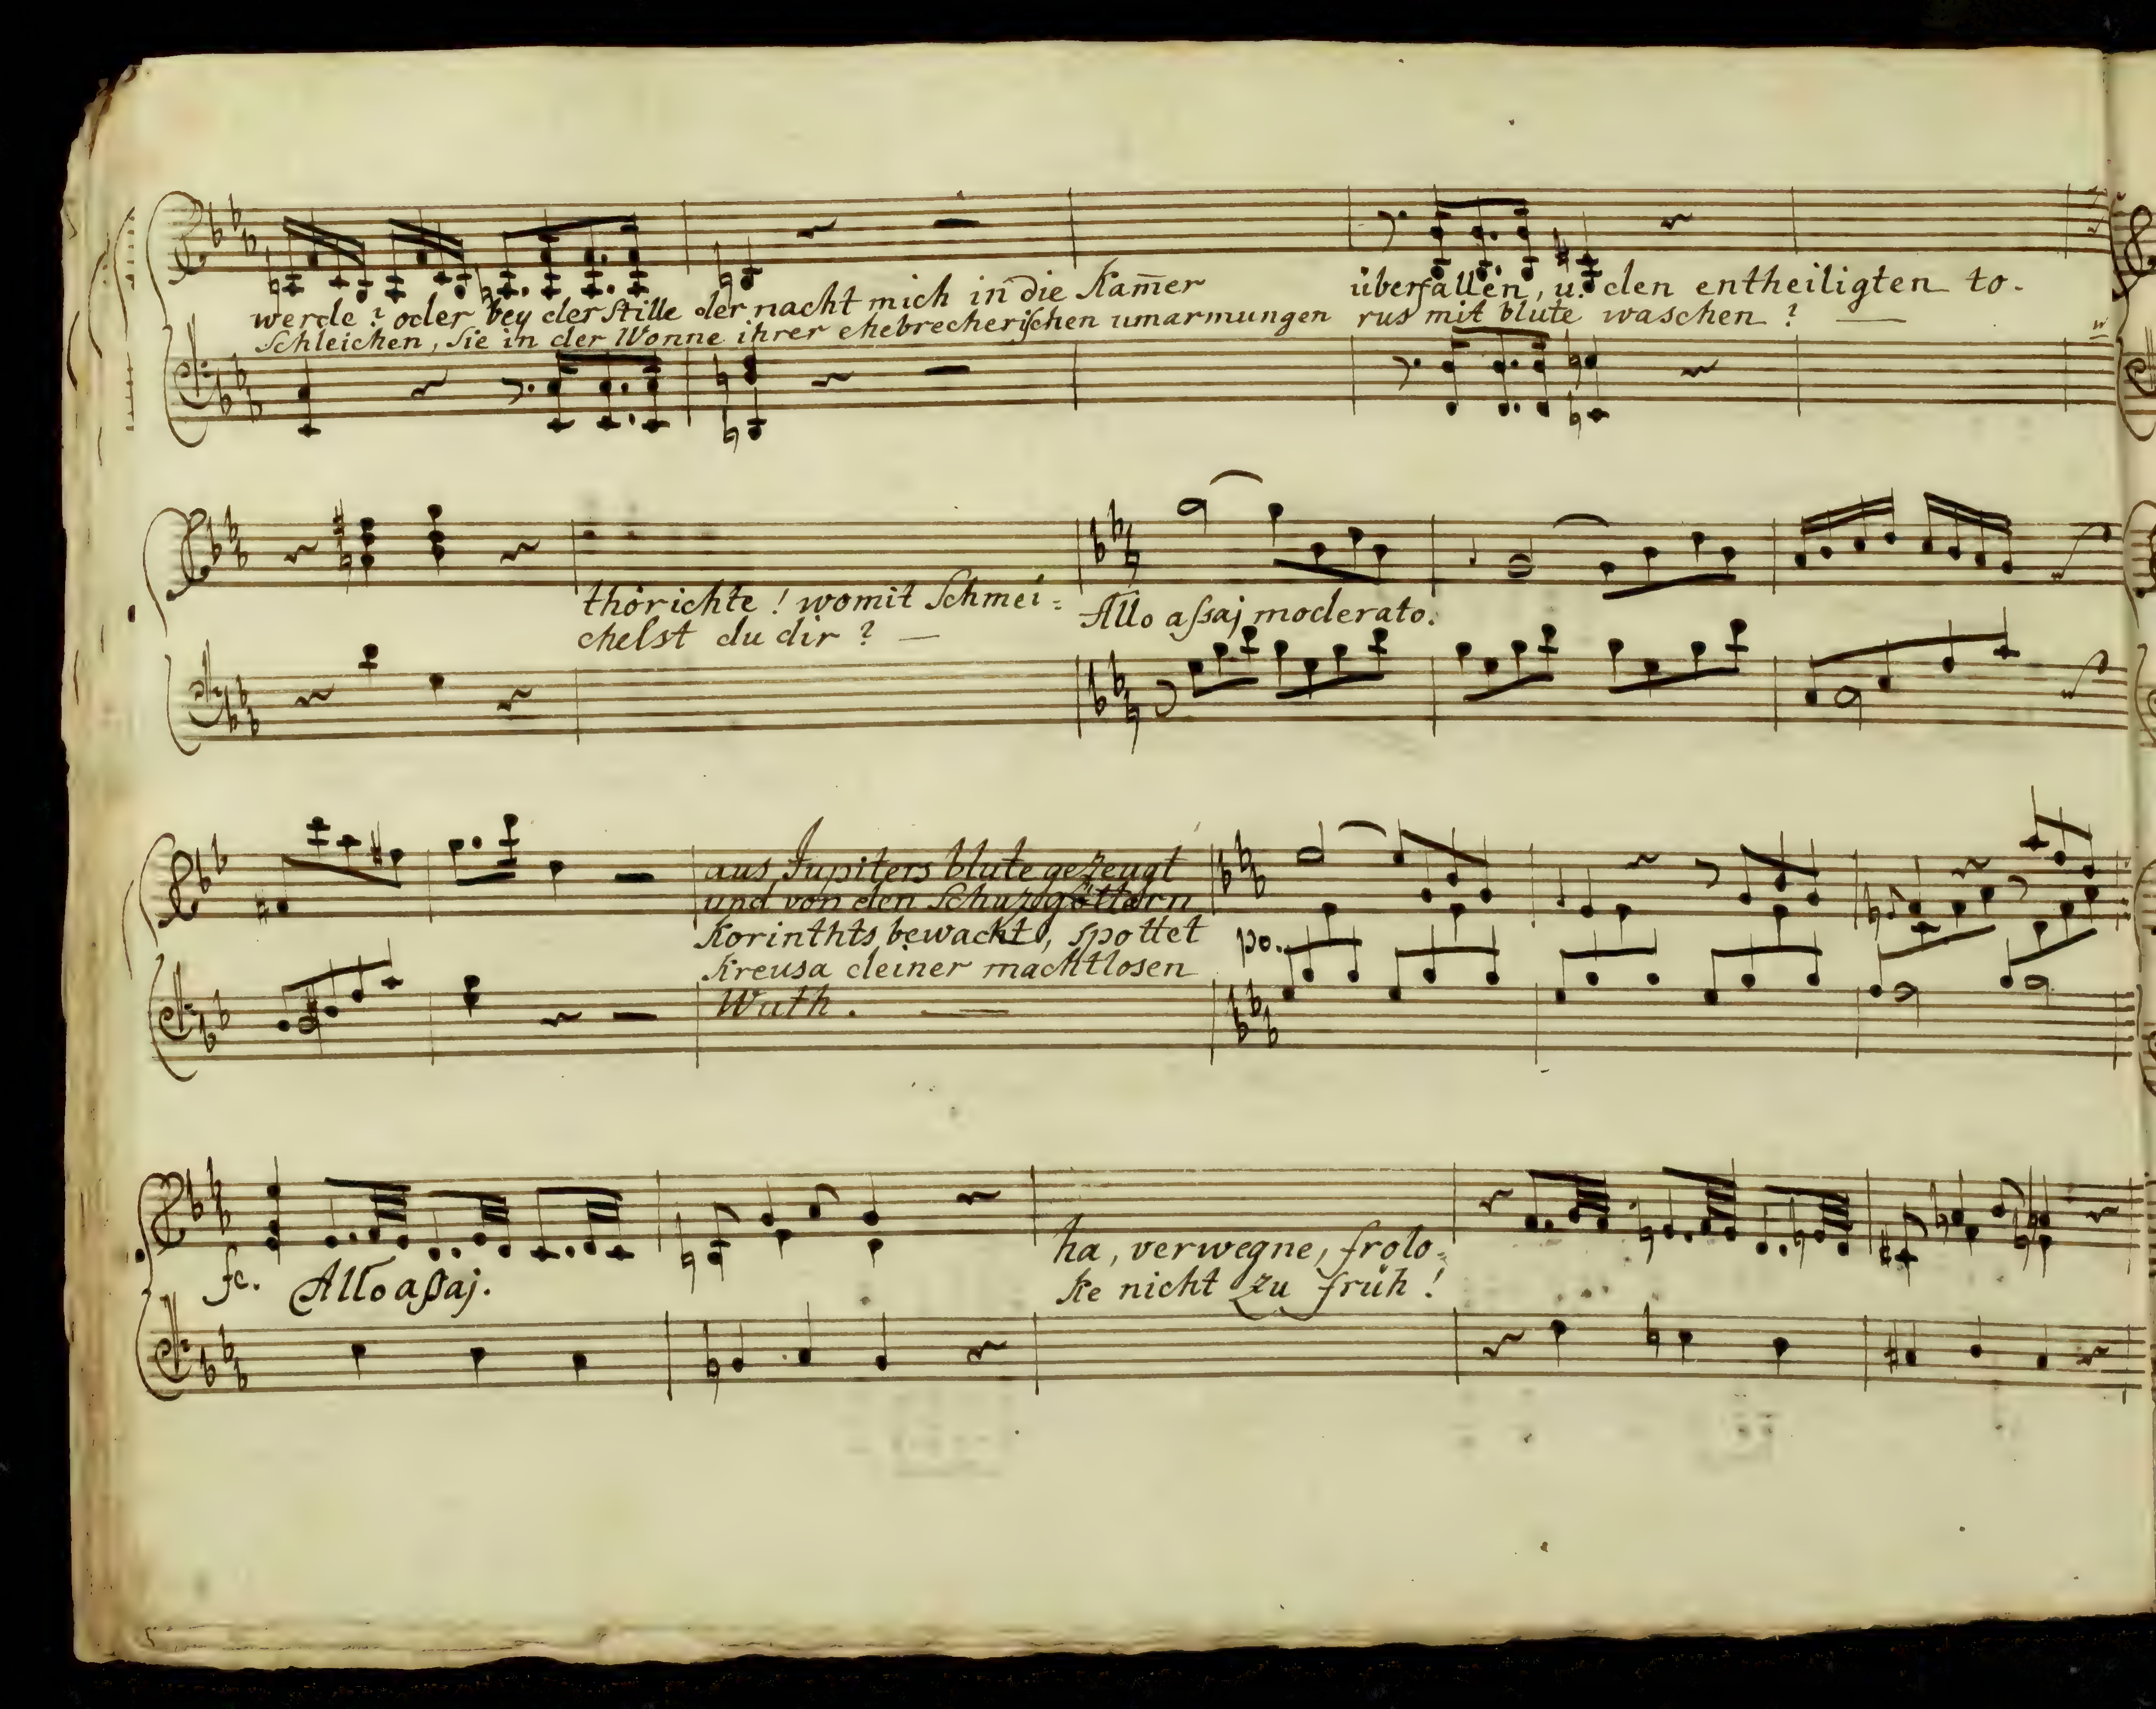 werde? oder bey der Stille der nacht mich in die Kam̄er überfallen, u. den entheiligten to-
Schleichen, Sie in der Wonne ihrer ehebrecherischen umarmungen rus mit blute waschen? —
thörichte! womit Schmei=
chelst du dir? —
Allo aſsaj moderato.
aus Jupiters blute gezeugt
und von den Schuzgöttern
Korinthts bewacht, spottet
Kreusa deiner machtlosen
Wuth. —
po.
fe. Allo aßaj.
ha, verwegne, frolo=
ke nicht zu früh!